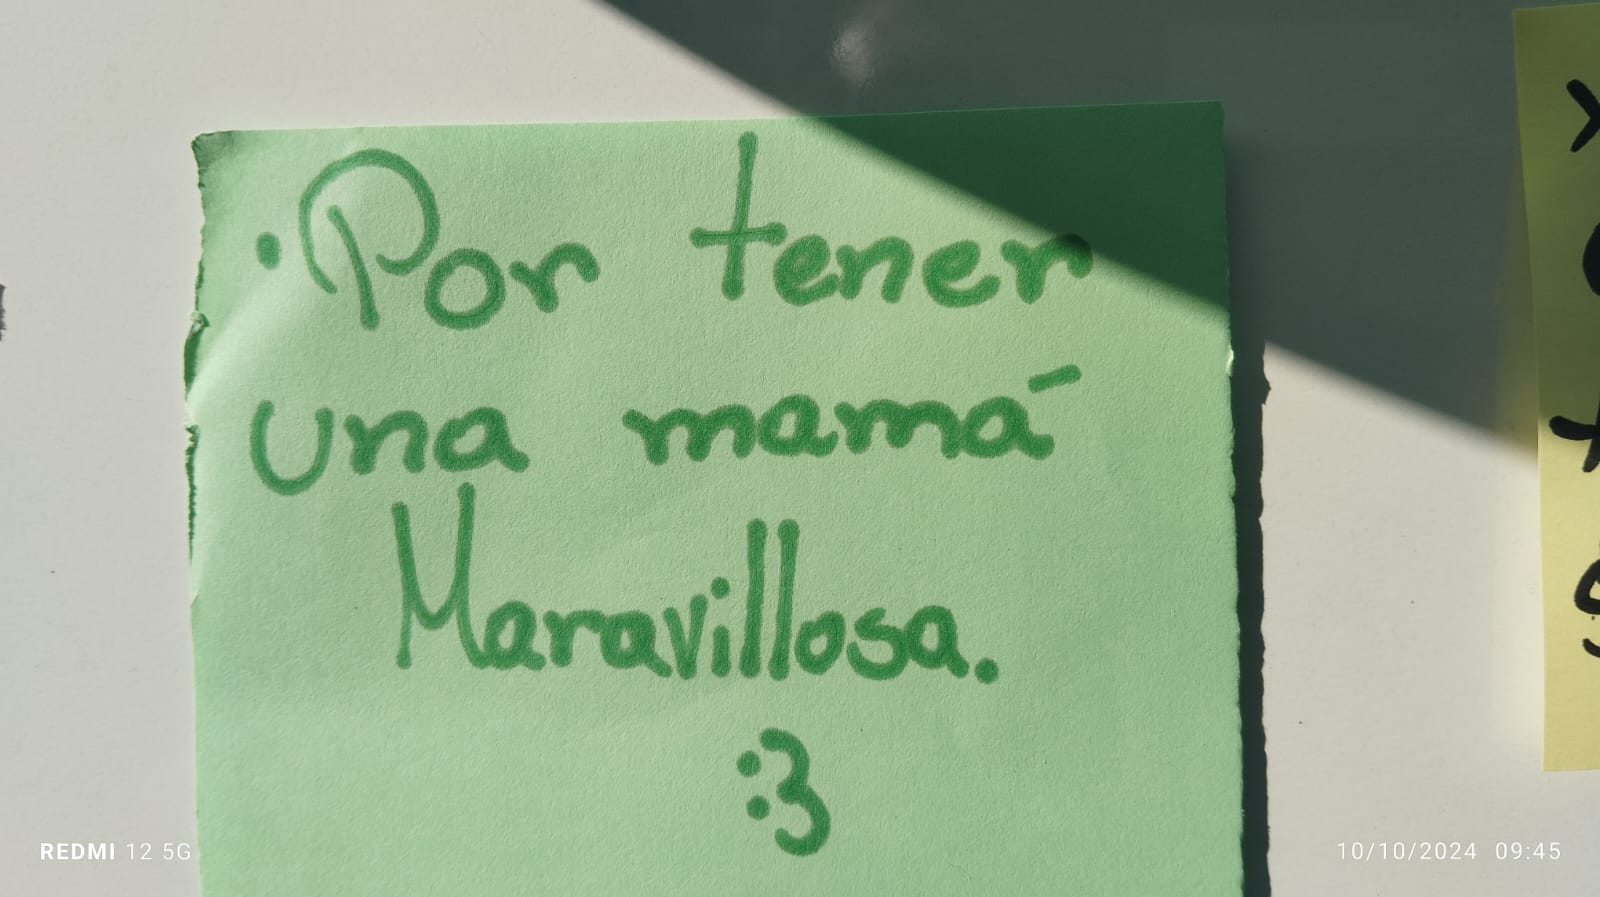 ·Por tener
una mamá
Maravillosa.
:3
REDMI 12 5G
10/10/2024 09:45